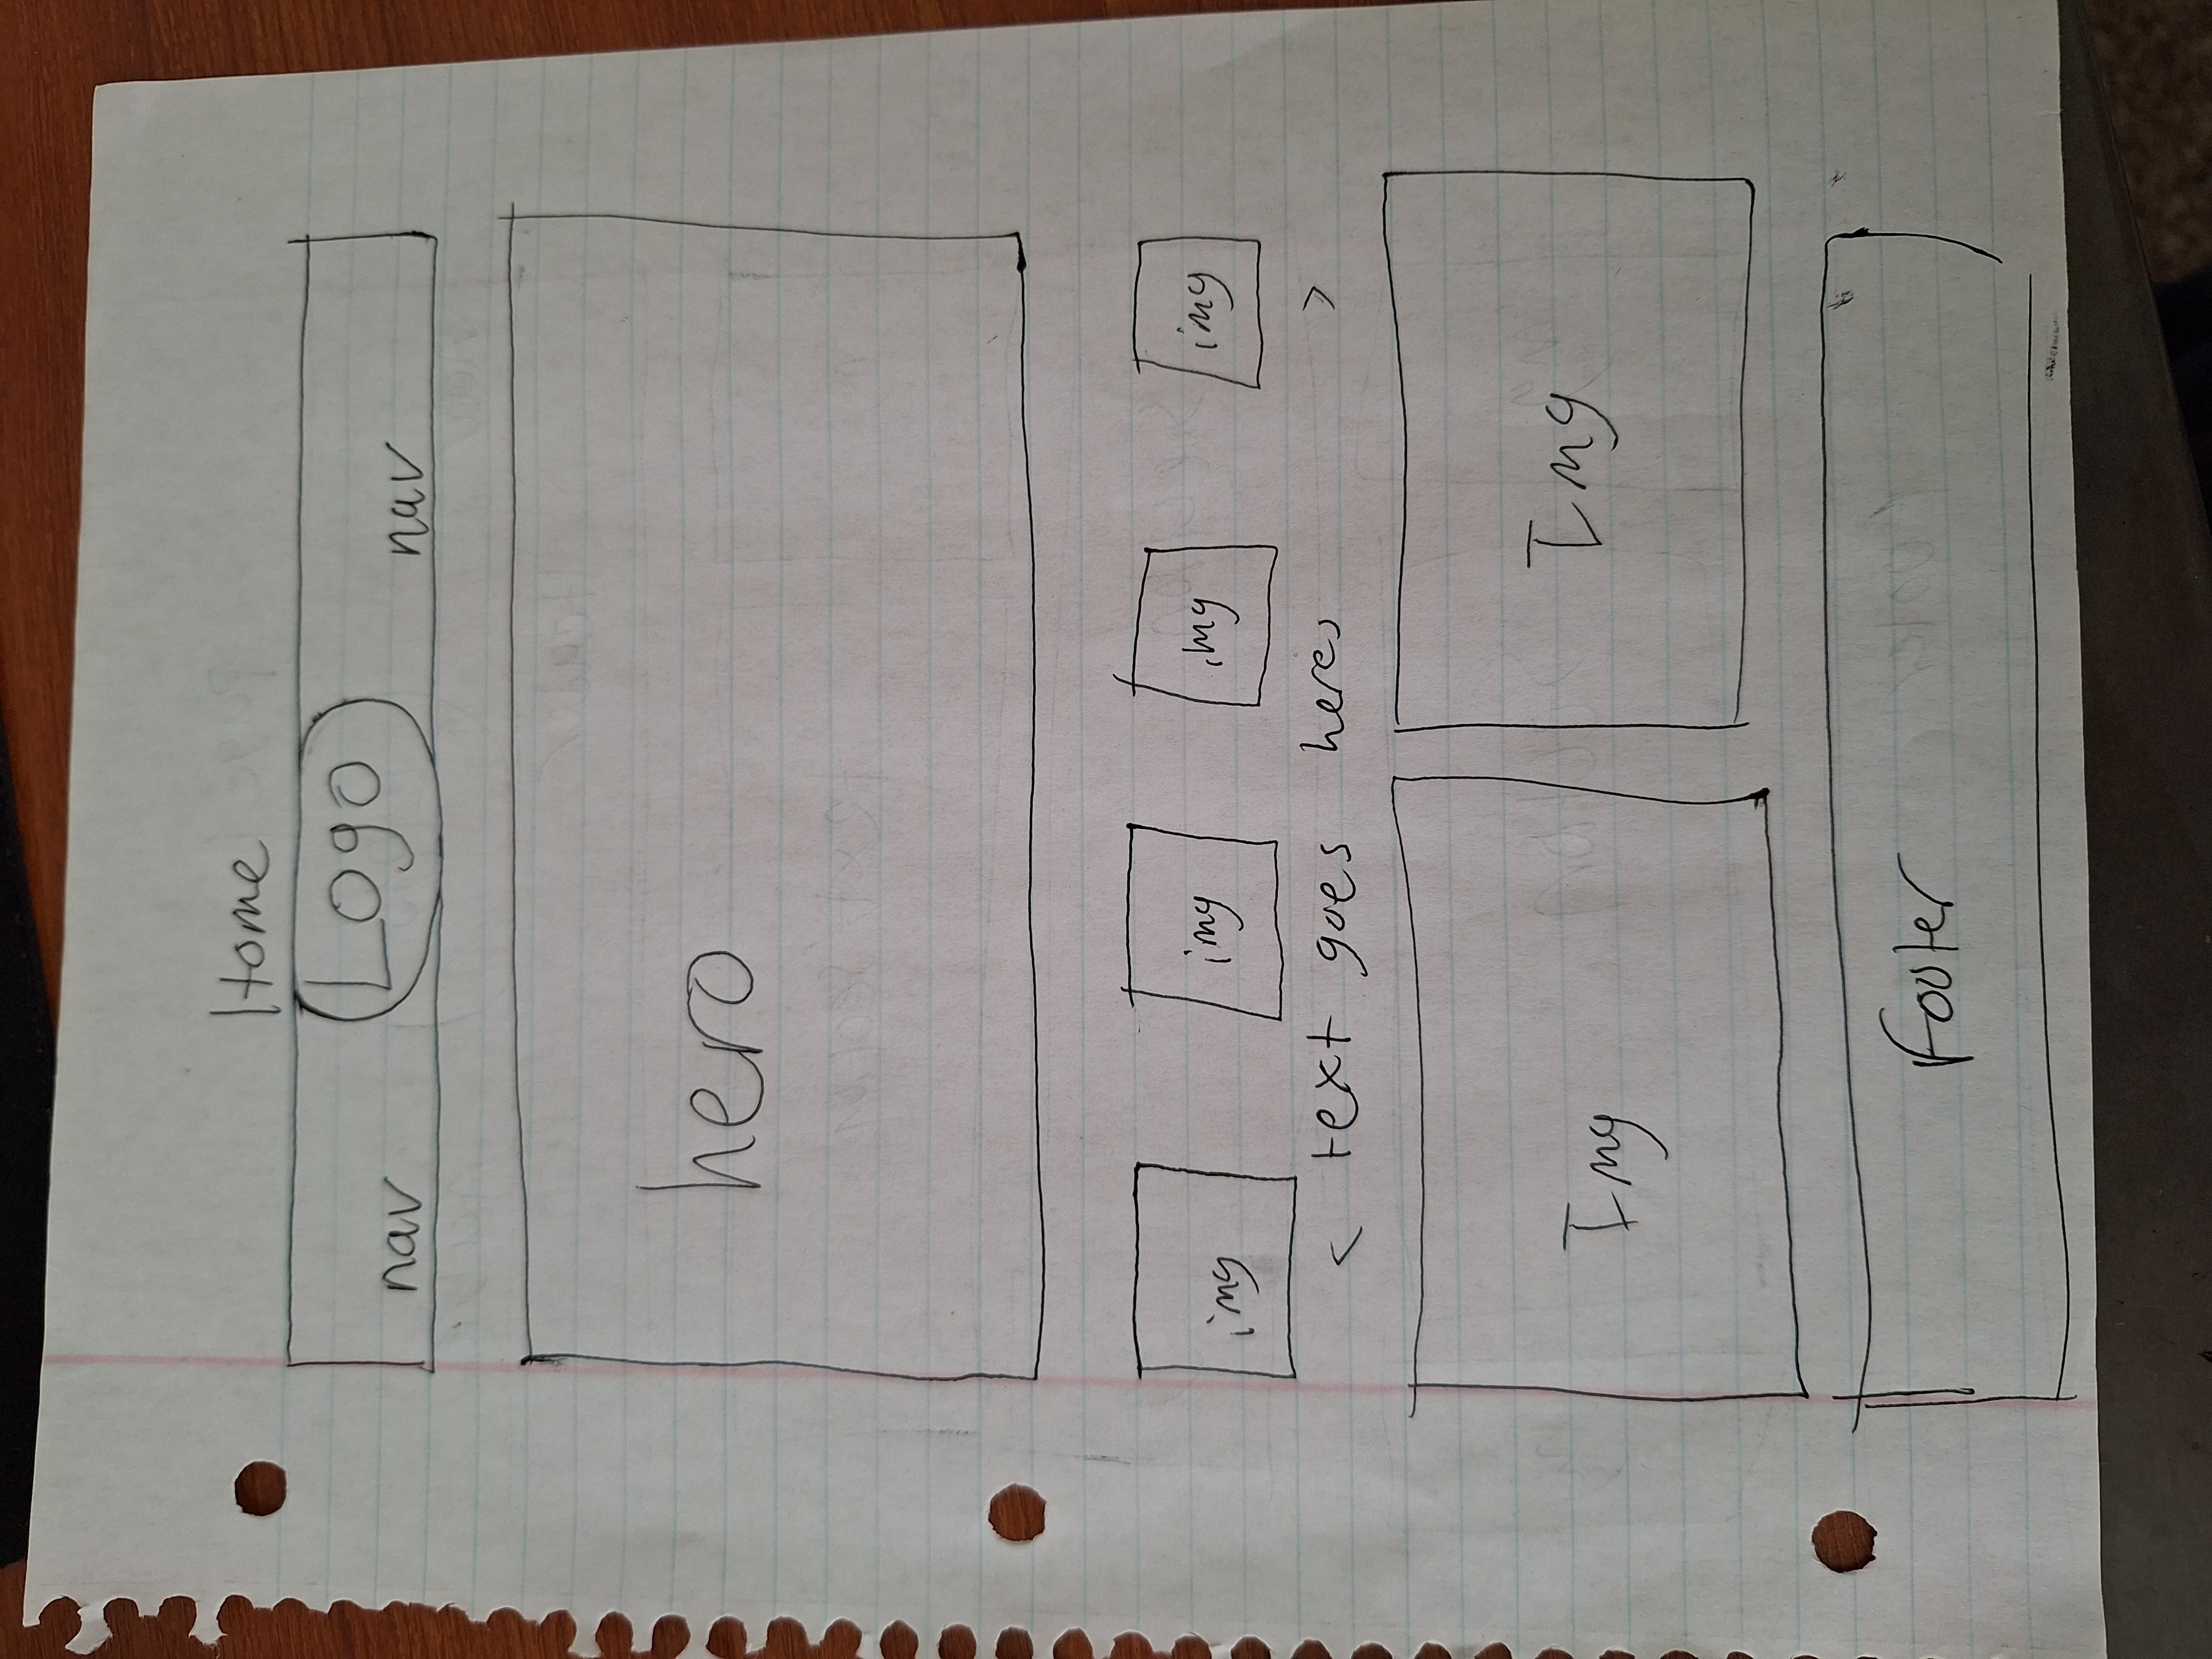 Home
Logo
nav nav
hero
img img img img
< text goes heres >
Img Img
Footer